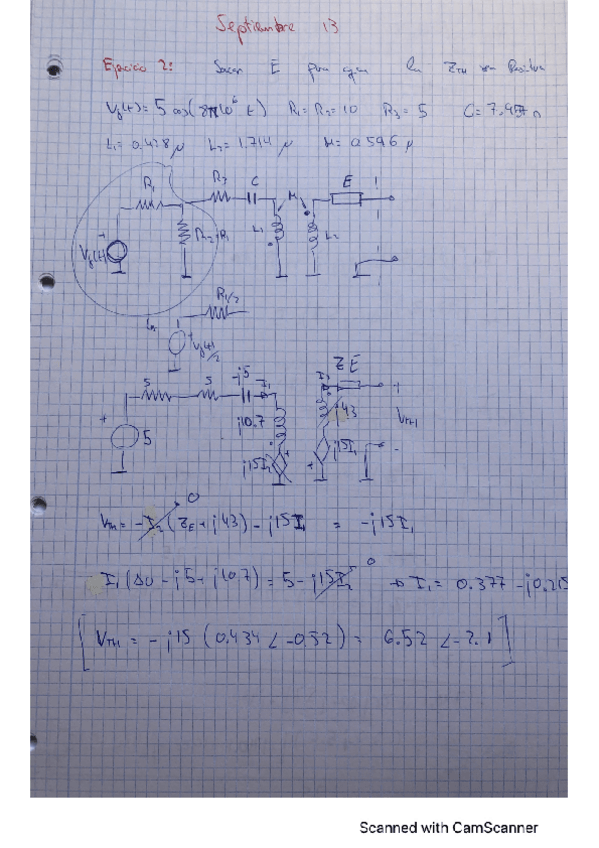 Septiembre 13
Ejercicio 2: Sacar E para que la ZTH sea Resistiva
Vg(t) = 5 cos(8π10⁶ t) R1 = R2 = 10 R3 = 5 C = 7.957 n
L1 = 0.428 μ L2 = 1.714 μ M = 0.596 μ
R1 R3 C M E
R2 = R1 L1 L2
Vg(t)
R1/2
Vg(t)/2
5 5 -j5 I1 I2 ZE
+ j10.7 j43 + VTH -
5 j15I2 j15I1
VTH = -I2 (ZE + j43) - j15I1 = -j15I1
0
I1 (10 - j5 + j10.7) = 5 - j15I2 → I1 = 0.377 - j0.215
0
[VTH = -j15 (0.434 ∠ -0.52) = 6.52 ∠ -2.1]
Scanned with CamScanner